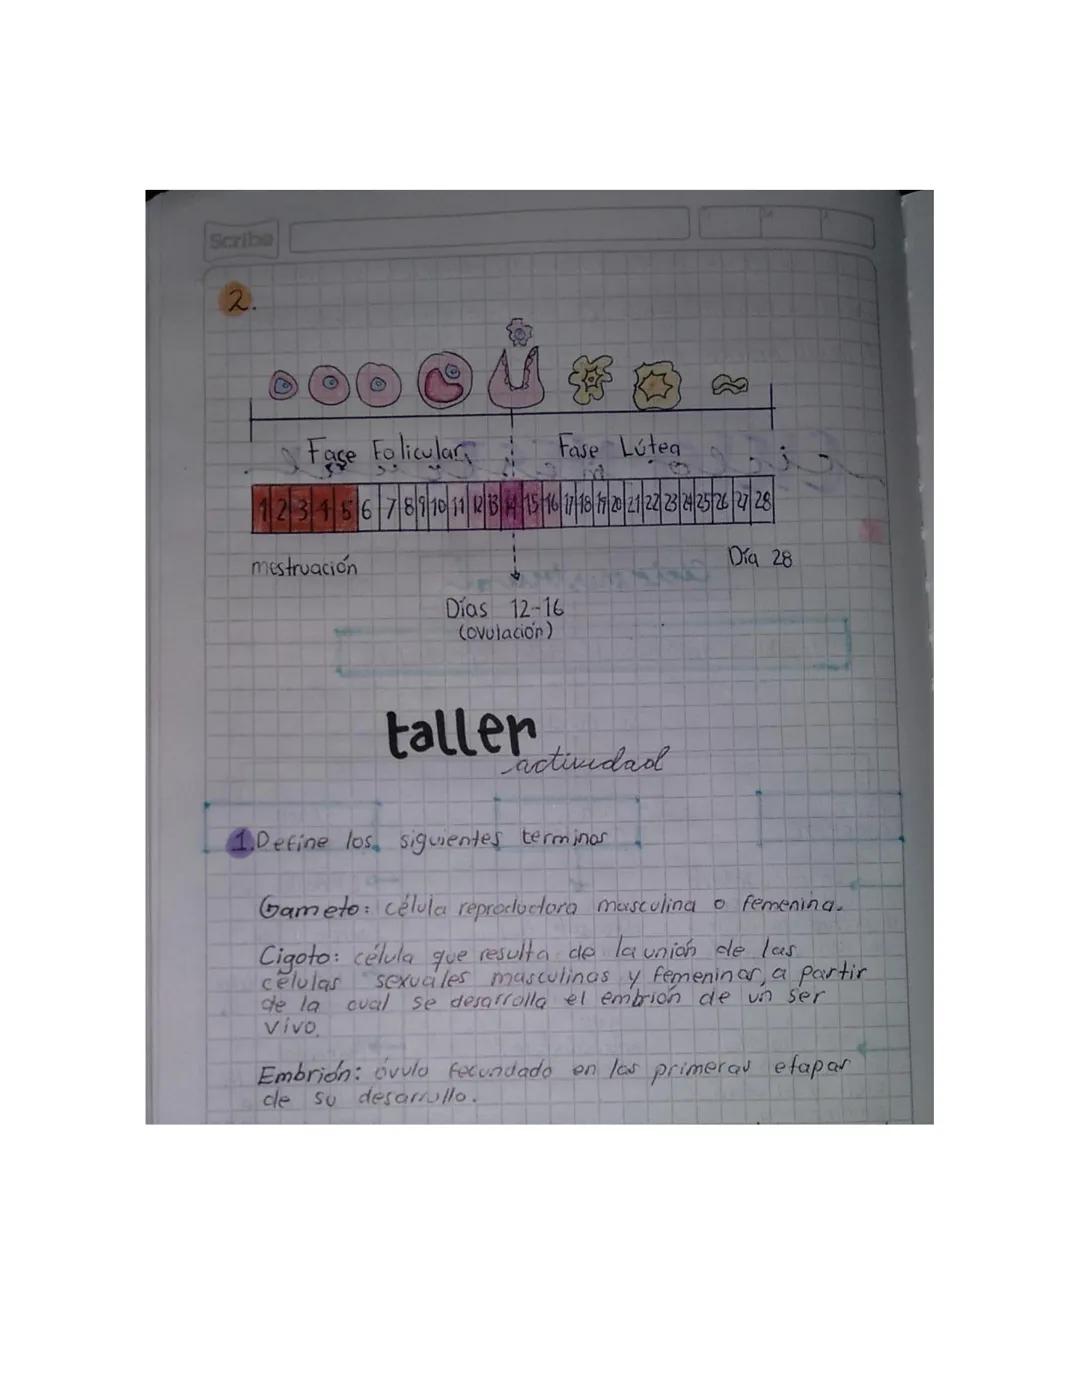 Scribe
2.
Fase Folicular
Fase Lútea
1 2 3 4 5 6 7 8 9 10 11 12 13 14 15 16 17 18 19 20 21 22 23 24 25 26 27 28
mestruación
Día 28
Días 12-16
(ovulación)
taller
actividad
1. Define los siguientes terminos
Gameto: célula reproductora masculina o femenina.
Cigoto: célula que resulta de la unión de las
células sexuales masculinas y femeninas, a partir
de la cual se desarrolla el embrión de un ser
vivo.
Embrión: óvulo fecundado en las primeras etapas
de su desarrollo.